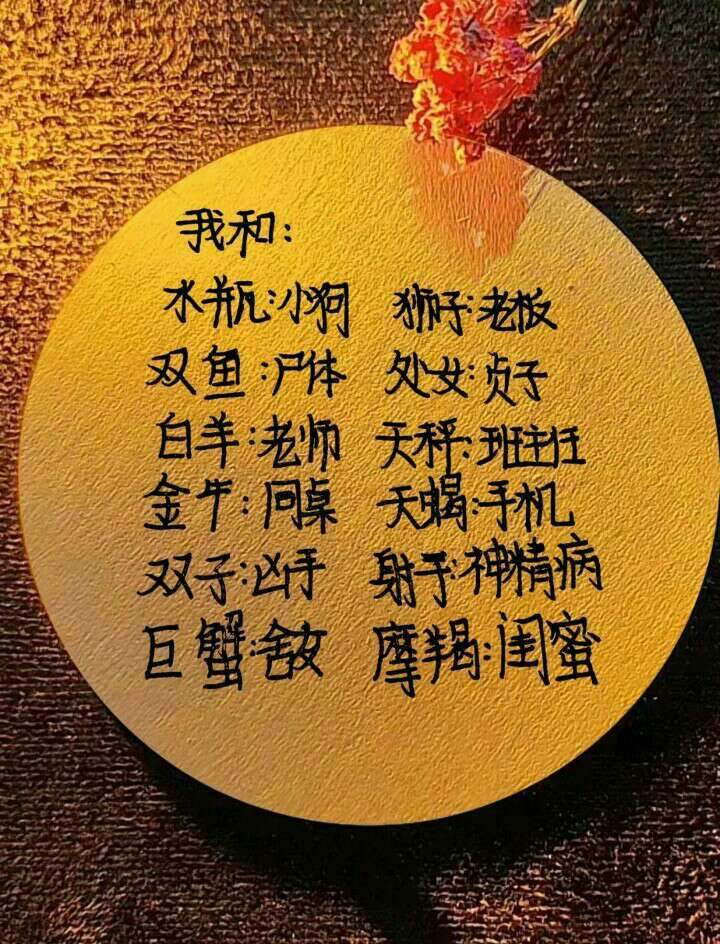 我和:
水瓶:小狗 狮子:老板
双鱼:尸体 处女:贞子
白羊:老师 天秤:班主任
金牛:同桌 天蝎:手机
双子:凶手 射手:神精病
巨蟹:舍友 摩羯:闺蜜